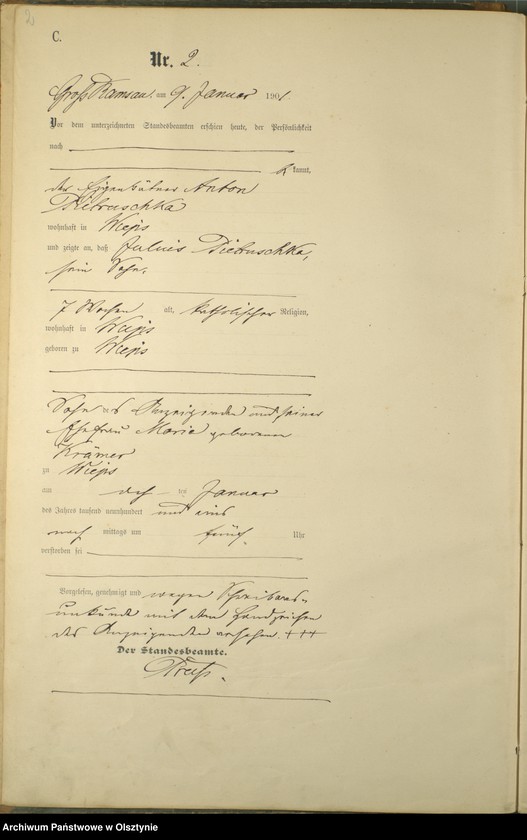 2
C.
Nr. 2.
Groß Ramsau, am 9. Januar 1901.
Vor dem unterzeichneten Standesbeamten erschien heute, der Persönlichkeit
nach
kannt,
der Eigenkätner Anton
Pietruschka
wohnhaft in Wieps
und zeigte an, daß Julius Pietruschka,
sein Sohn,
7 Wochen alt, katholischer Religion,
wohnhaft in Wieps
geboren zu Wieps
Sohn des Anzeigenden und seiner
Ehefrau Marie geborenen
Krämer
zu Wieps
am des Januar
des Jahres tausend neunhundert und eins
nach mittags um Uhr
verstorben sei
Vorgelesen, genehmigt und wegen Schreibens-
unkunde mit dem Handzeichen
des Anzeigenden versehen. +++
Der Standesbeamte.
Archiwum Państwowe w Olsztynie